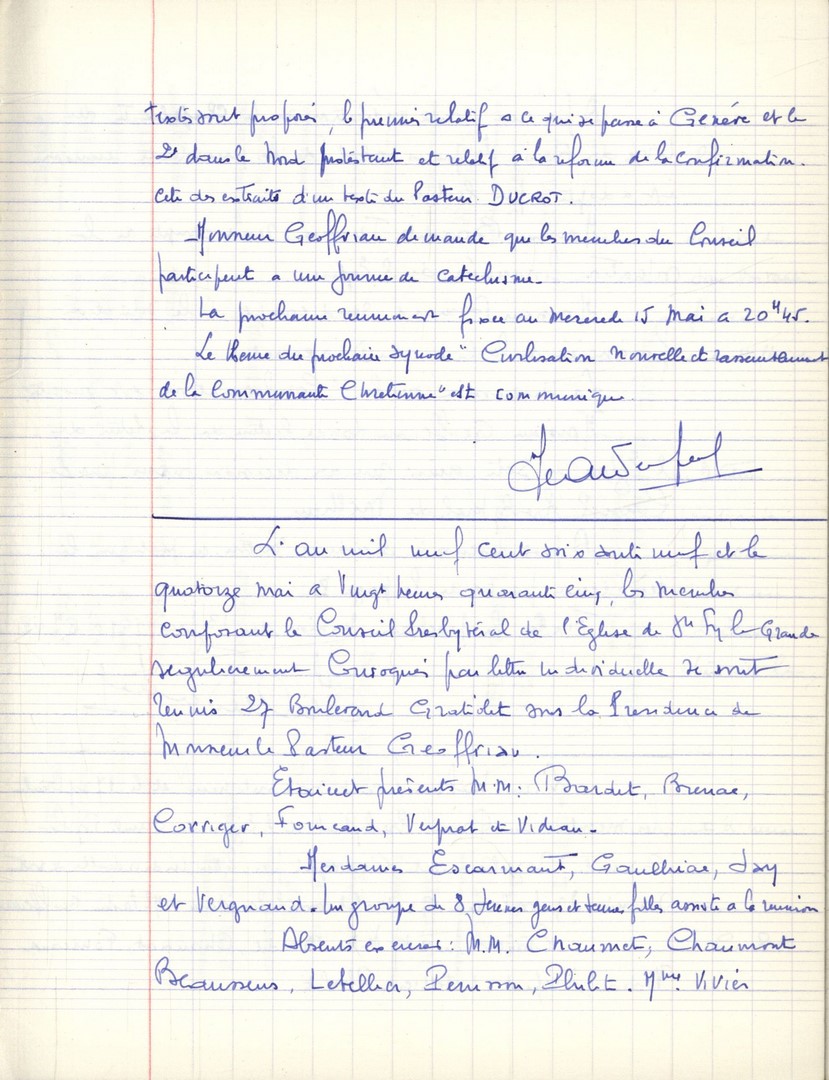 textes sont proposés, le premier relatif a ce qui se passe à Genève et le
2e dans le Nord protestant et relatif à la reforme de la confirmation.
Cete des extraits d'un texte du Pasteur DUCROT.
Monsieur Geoffriau demande que les membres du Conseil
participent a une journee de catechisme.
La prochaine reunion est fixee au Mercredi 15 Mai a 20H45.
Le theme du prochain synode "Civilisation nouvelle et rassemblement
de la Communauté Chretienne" est communique.
L'an mil neuf cent soixante neuf et le
quatorze mai a Vingt heures quarante cinq, les membres
composant le Conseil Presbytéral de l'Eglise de Ste Foy la Grande
regulierement Convoqués par lettre individuelle se sont
reunis 27 Boulevard Gratiolet sous la Presidence de
Monsieur le Pasteur Geoffriau.
Etaient présents M.M: Bardet, Brenac,
Corriger, Foucaud, Veyrat et Videau.
Mesdames Escarmant, Gauthier, Jay
et Vergnaud. Un groupe de 8 Jeunes gens et Jeunes filles assiste a la reunion
Absents excuses: M.M. Chaumet, Chaumont
Letellier, Philit. Mme Vivier